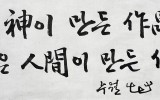 神이 만든 作品
은 人間이 만든 作
수월